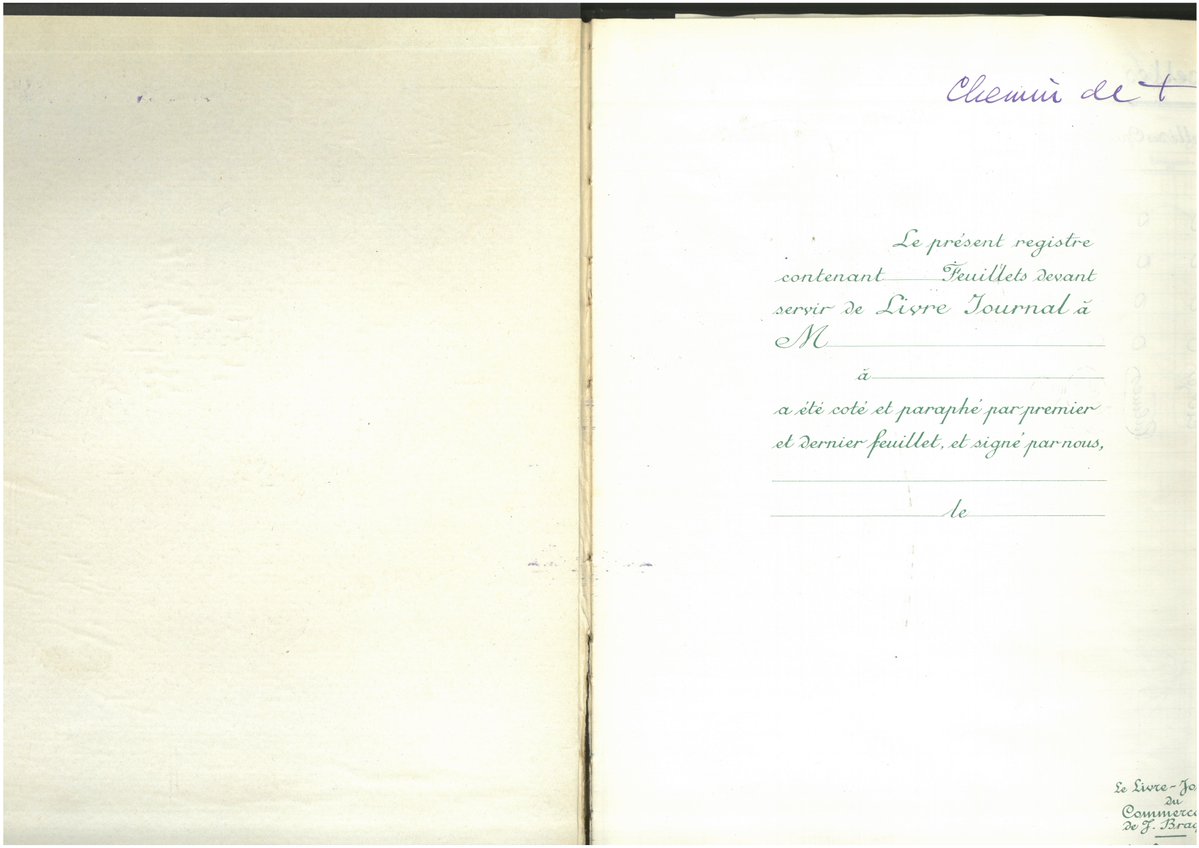 Chemin de +
Le présent registre
contenant Feuillets devant
servir de Livre Journal à
M
à
a été coté et paraphé par premier
et dernier feuillet, et signé par nous,
le
Le Livre-Jo
du
Commerce
de J. Brag